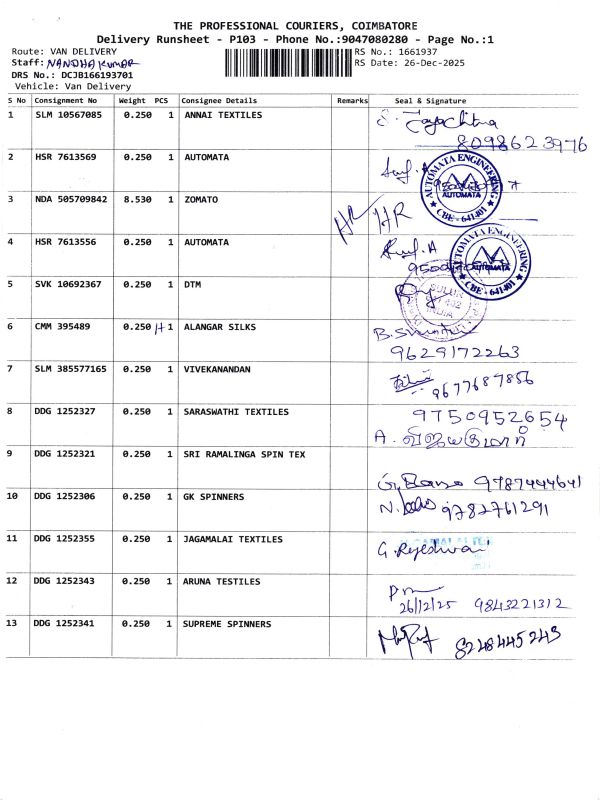 THE PROFESSIONAL COURIERS, COIMBATORE
Delivery Runsheet - P103 - Phone No.:9047080280 - Page No.:1
Route: VAN DELIVERY RS No.: 1661937
Staff: NANDHA KUMAR RS Date: 26-Dec-2025
DRS No.: DCJB166193701
Vehicle: Van Delivery
S No Consignment No Weight PCS Consignee Details Remarks Seal & Signature
1 SLM 10567085 0.250 1 ANNAI TEXTILES
8098623976
2 HSR 7613569 0.250 1 AUTOMATA
AUTOMATA ENGINEERING
AUTOMATA
CBE - 641401
3 NDA 505709842 8.530 1 ZOMATO HR HR
4 HSR 7613556 0.250 1 AUTOMATA
AUTOMATA ENGINEERING
AUTOMATA
CBE - 641401
5 SVK 10692367 0.250 1 DTM
SULUR
INDIA
6 CMM 395489 0.250 H 1 ALANGAR SILKS
9629172263
7 SLM 385577165 0.250 1 VIVEKANANDAN
9677687856
8 DDG 1252327 0.250 1 SARASWATHI TEXTILES 9750952654
A. விஜயகுமார்
9 DDG 1252321 0.250 1 SRI RAMALINGA SPIN TEX
9787444641
10 DDG 1252306 0.250 1 GK SPINNERS
9782761291
11 DDG 1252355 0.250 1 JAGAMALAI TEXTILES
G. Rajeshwari
12 DDG 1252343 0.250 1 ARUNA TESTILES
26/12/25 9843221312
13 DDG 1252341 0.250 1 SUPREME SPINNERS
8248445243